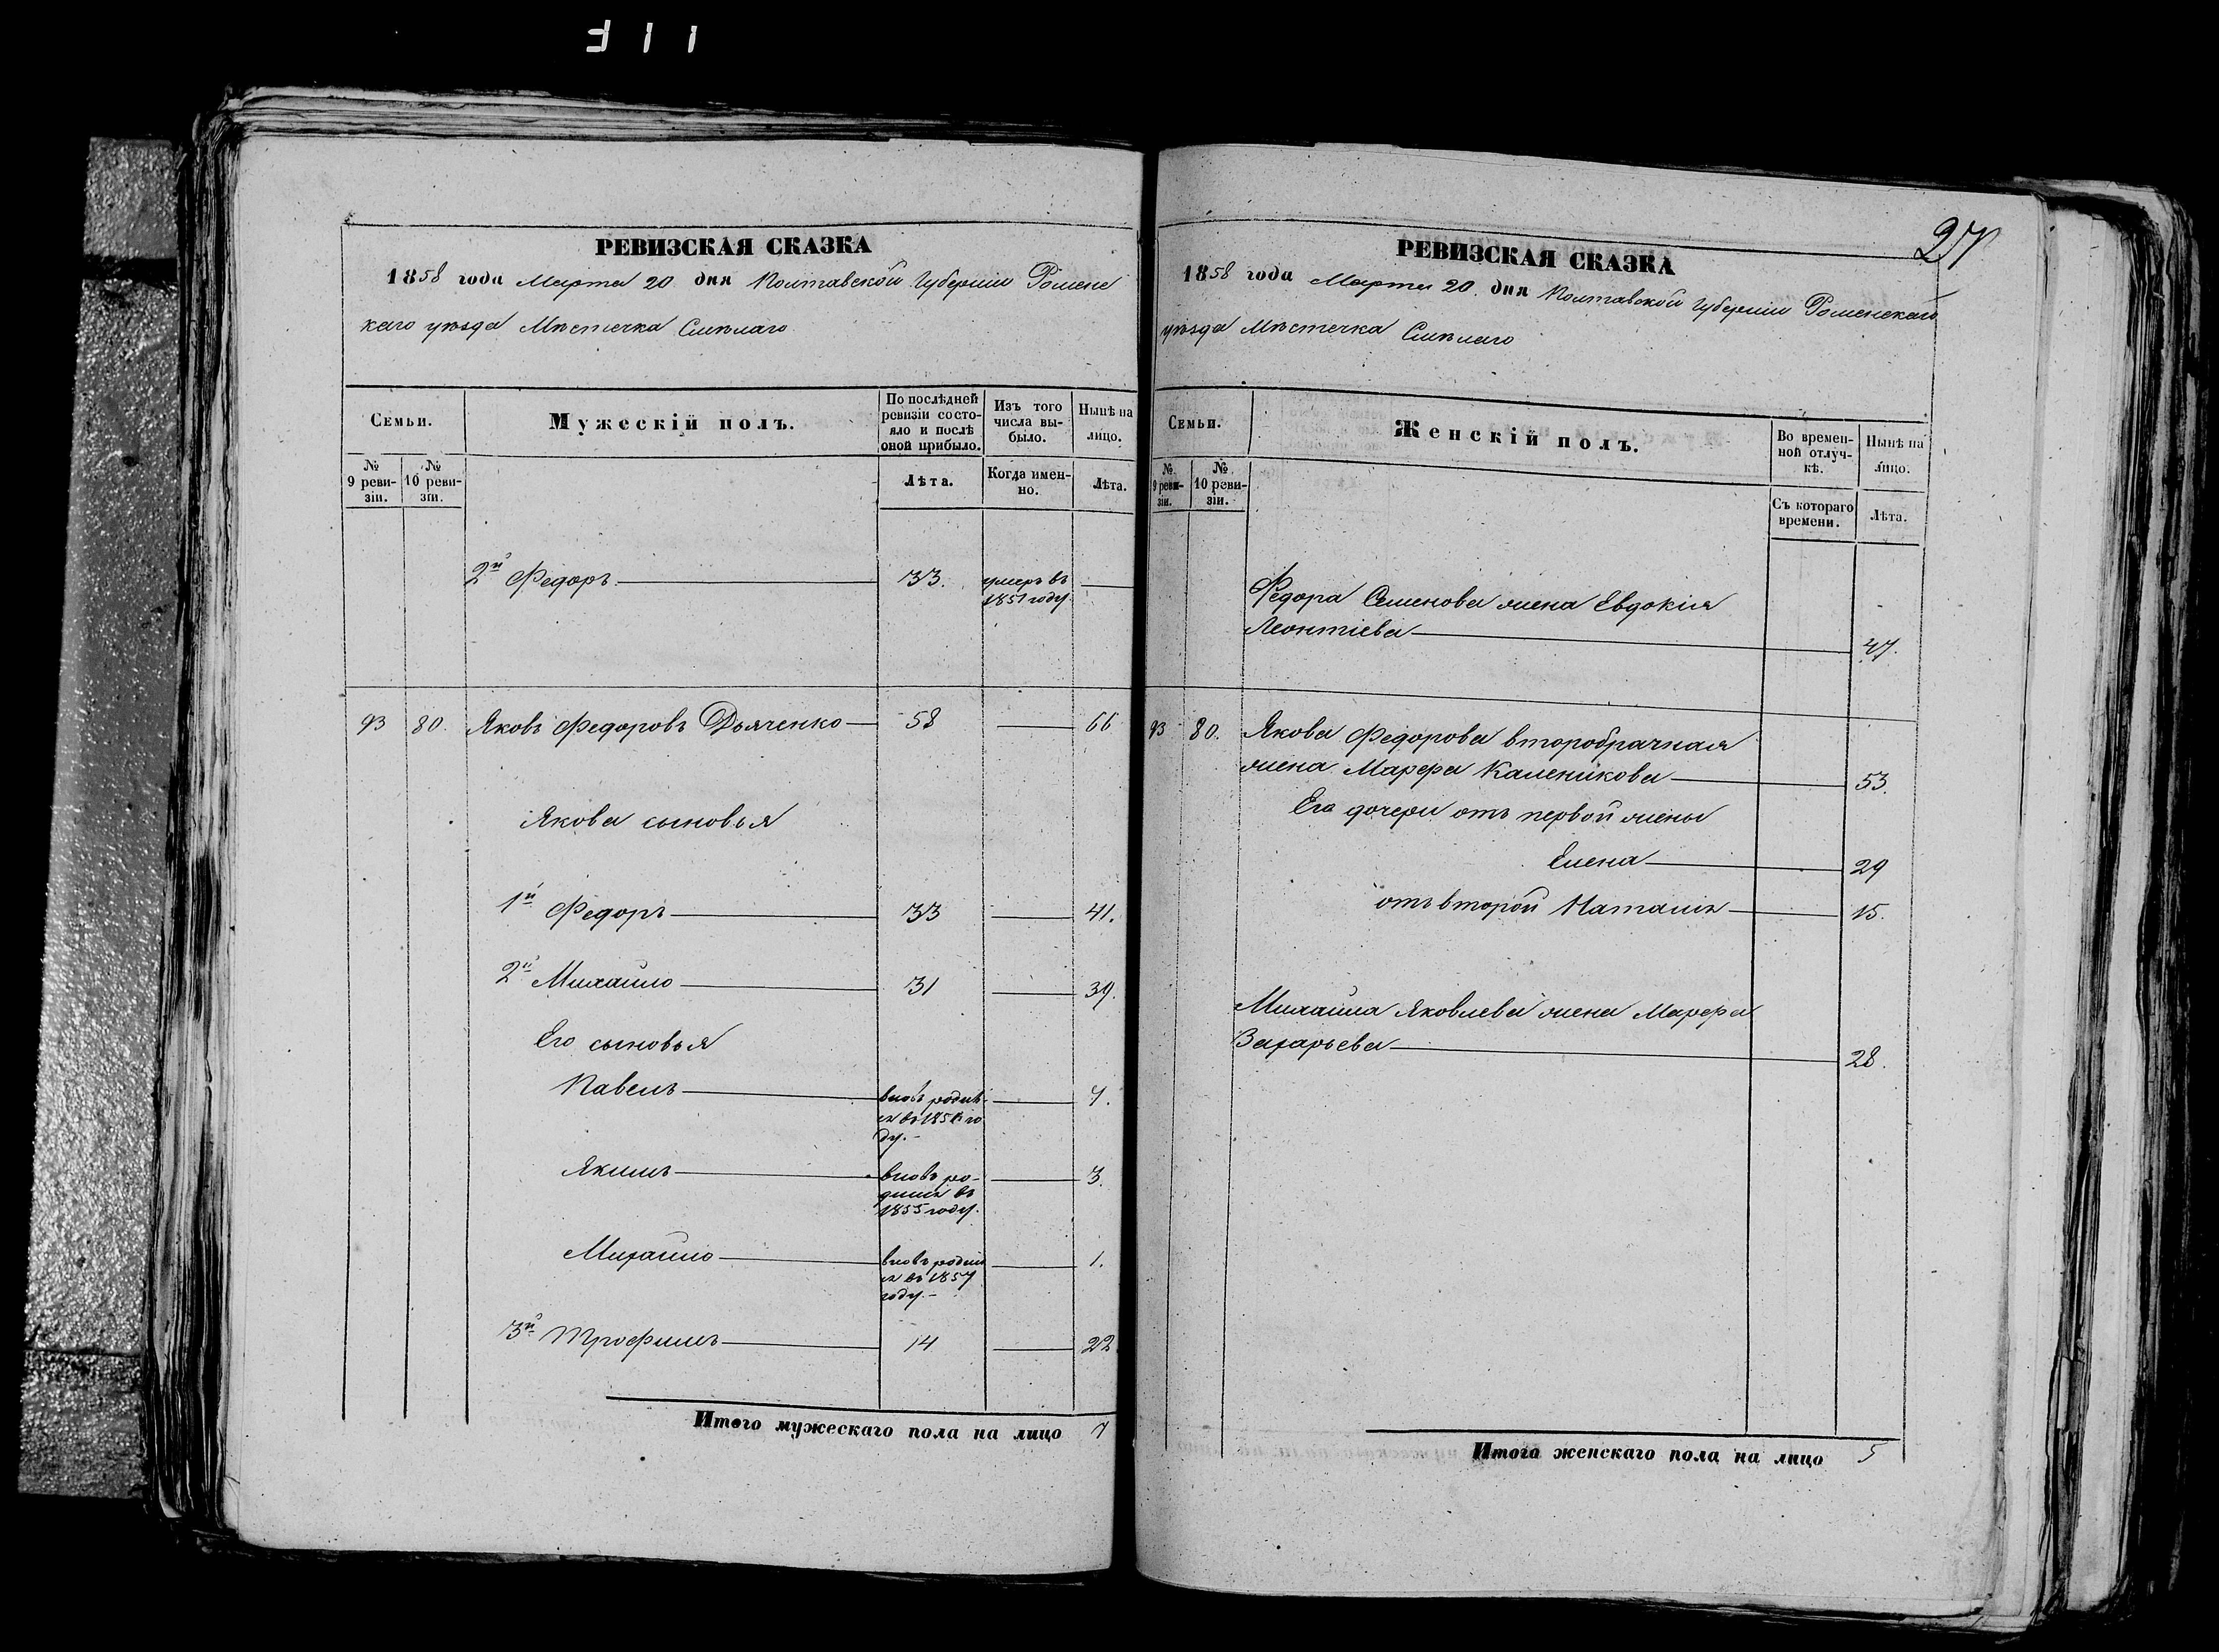 РЕВИЗСКАЯ СКАЗКА
1858 года Марта 20 дня Полтавской Губерніи Роменс
каго уѣзда Мѣстечка Смѣлаго
Семьи.
Мужескій полъ.
По послѣдней ревизіи состояло и послѣ оной прибыло.
Изъ того числа выбыло.
Нынѣ на лицо.
№ 9 ревизіи.
№ 10 ревизіи.
Лѣта.
Когда именно.
Лѣта.
2й Федоръ 33. умеръ въ
1851 году.
93 80. Яковъ Федоровъ Дьяченко 58 66
Якова сыновья
1й Федоръ 33 41.
2й Михайло 31 39.
Его сыновья
Павелъ вновь родил 4.
ся въ 1854 го
ду.
Якимъ вновь ро- 3.
дился въ
1855 году.
Михайло вновь родил 1.
ся въ 1857
году.
3й Трофимъ 14 22
Итого мужескаго пола на лицо 7
27
РЕВИЗСКАЯ СКАЗКА
1858 года Марта 20. дня Полтавской Губерніи Роменскаго
уѣзда Мѣстечка Смѣлаго
Семьи.
Женскій полъ.
Во временной отлучкѣ.
Нынѣ на лицо.
№ 9 ревизіи.
№ 10 ревизіи.
Съ котораго времени.
Лѣта.
Федора Семенова жена Евдокія
Леонтіева 47.
93 80. Якова Федорова второбрачная
жена Марфа Каленикова 53.
Его дочери отъ первой жены
Елена 29
отъ второй Наталія 15.
Михайла Яковлева жена Марфа
Захарьева 28.
Итого женскаго пола на лицо 5